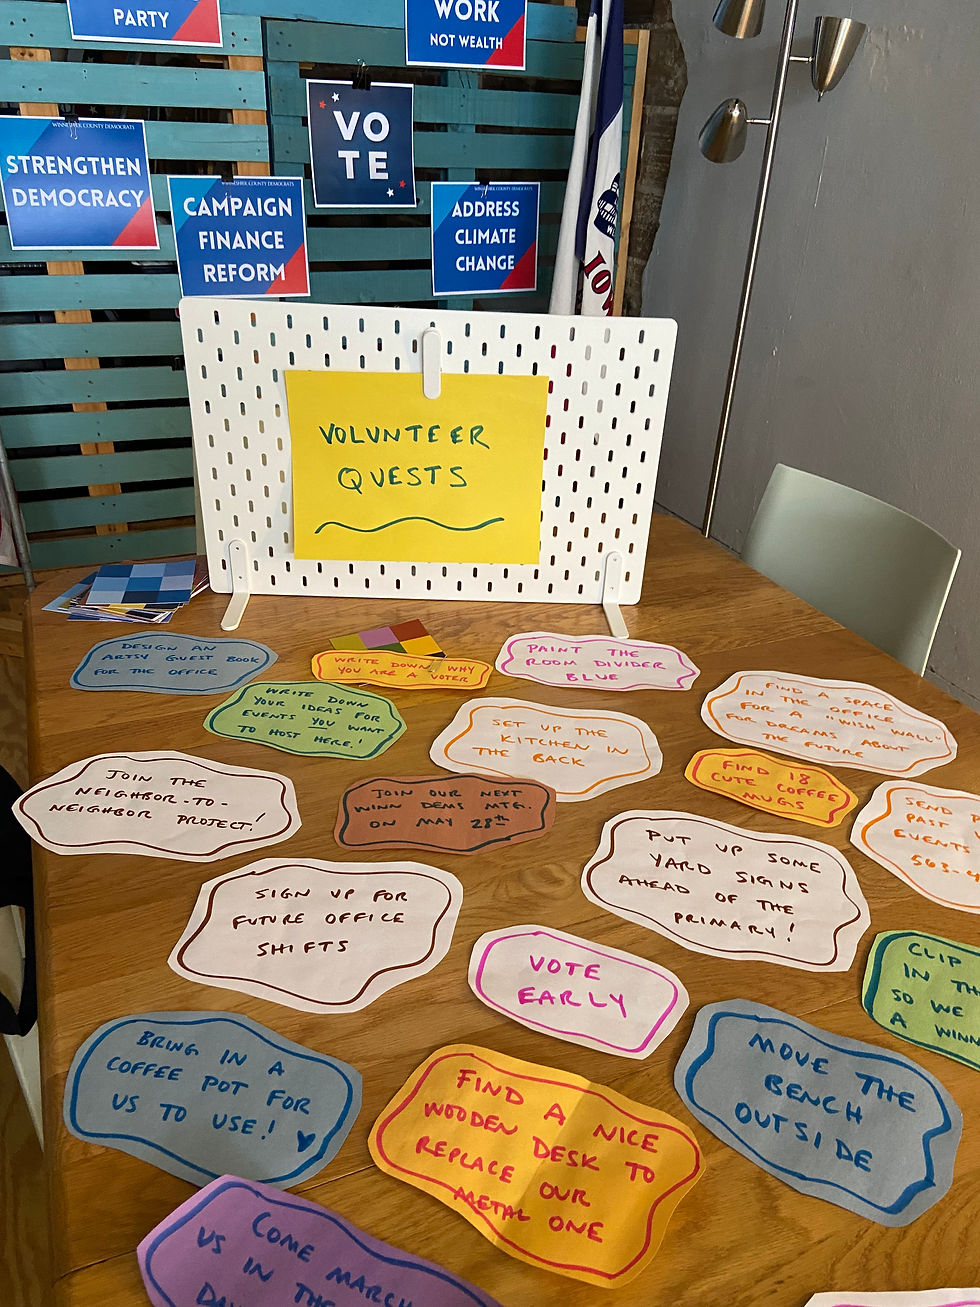 PARTY
WORK
NOT WEALTH
VO
TE
WINNESHIEK COUNTY DEMOCRATS
STRENGTHEN
DEMOCRACY
WINNESHIEK COUNTY DEMOCRATS
CAMPAIGN
FINANCE
REFORM
WINNESHIEK COUNTY DEMOCRATS
ADDRESS
CLIMATE
CHANGE
VOLUNTEER
QUESTS
DESIGN AN
ARTSY GUEST BOOK
FOR THE OFFICE
WRITE DOWN WHY
YOU ARE A VOTER
PAINT THE
ROOM DIVIDER
BLUE
WRITE DOWN
YOUR IDEAS FOR
EVENTS YOU WANT
TO HOST HERE!
SET UP THE
KITCHEN IN
THE BACK
FIND A SPACE
IN THE OFFICE
FOR A "WISH WALL"
FOR DREAMS ABOUT
THE FUTURE
JOIN THE
NEIGHBOR-TO-
NEIGHBOR PROJECT!
JOIN OUR NEXT
WINN DEMS MTG.
ON MAY 28th
FIND 18
CUTE COFFEE
MUGS
SEND
PAST
EVENTS
563-4
PUT UP SOME
YARD SIGNS
AHEAD OF THE
PRIMARY!
SIGN UP FOR
FUTURE OFFICE
SHIFTS
VOTE
EARLY
CLIP
IN TH
SO WE
A WINN
BRING IN A
COFFEE POT FOR
US TO USE!
FIND A NICE
WOODEN DESK TO
REPLACE OUR
METAL ONE
MOVE THE
BENCH
OUTSIDE
COME MARCH
US IN THE